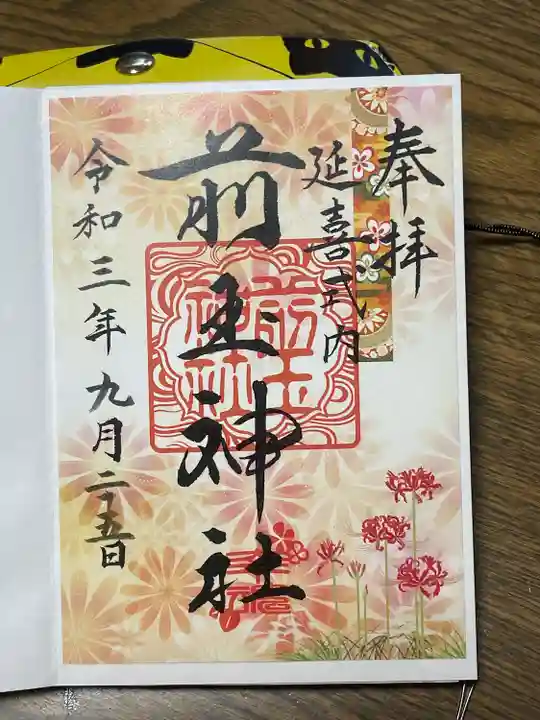 奉拝
延喜式内
前玉神社
前玉神社
令和三年九月二五日